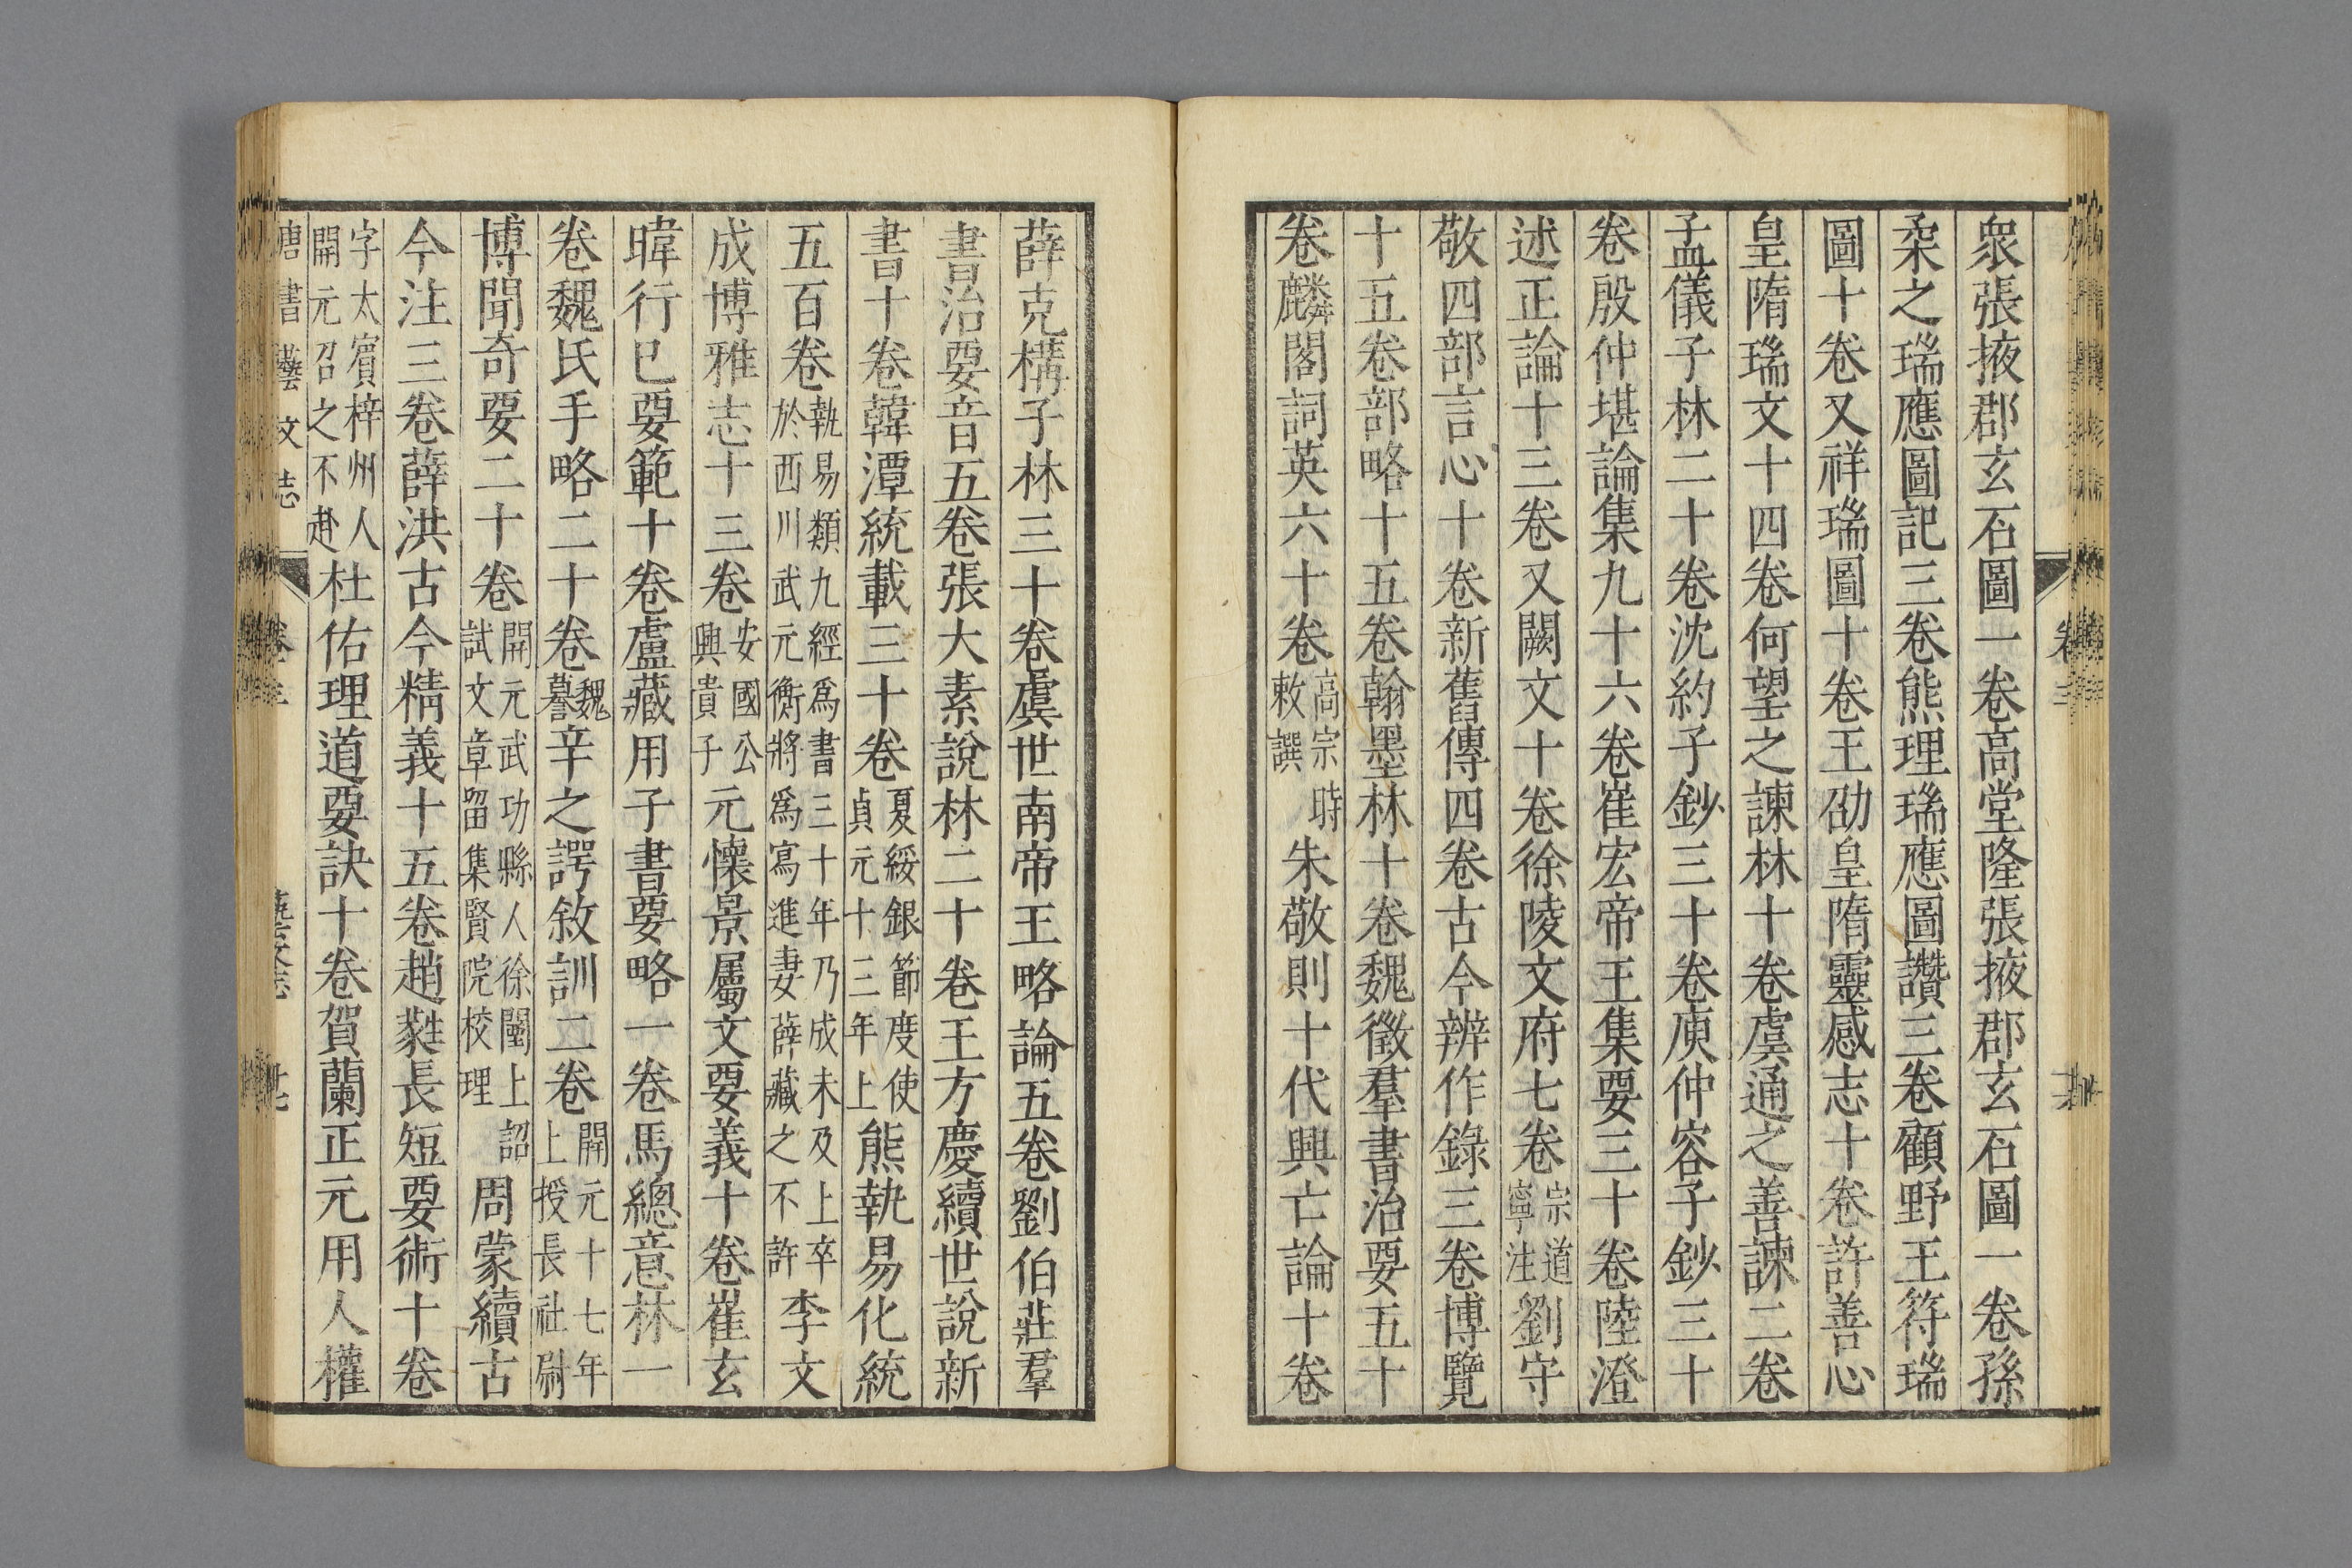 衆張掖郡玄石圖一卷高堂隆張掖郡玄石圖一卷孫
柔之瑞應圖記三卷熊理瑞應圖讚三卷顧野王符瑞
圖十卷又祥瑞圖十卷王劭皇隋靈感志十卷許善心
皇隋瑞文十四卷何望之諫林十卷虞通之善諫二卷
孟儀子林二十卷沈約子鈔三十卷庾仲容子鈔三十
卷殷仲堪論集九十六卷崔宏帝王集要三十卷陸澄
述正論十三卷又闕文十卷徐陵文府七卷宗道寧注劉守
敬四部言心十卷新舊傳四卷古今辨作錄三卷博覽
十五卷部略十五卷翰墨林十卷魏徵羣書治要五十
卷麟閣詞英六十卷高宗時敕譔朱敬則十代興亡論十卷
薛克構子林三十卷虞世南帝王略論五卷劉伯莊羣
書治要音五卷張大素說林二十卷王方慶續世說新
書十卷韓潭統載三十卷夏綏銀節度使貞元十三年上熊執易化統
五百卷執易類九經爲書三十年乃成未及上卒於西川武元衡將爲寫進妻薛藏之不許李文
成博雅志十三卷安國公興貴子元懷景屬文要義十卷崔玄
暐行己要範十卷盧藏用子書要略一卷馬總意林一
卷魏氏手略二十卷魏謩辛之諤敘訓二卷開元十七年上授長社尉
博聞奇要二十卷開元武功縣人徐闉上詔試文章留集賢院校理周蒙續古
今注三卷薛洪古今精義十五卷趙蕤長短要術十卷
字太賓梓州人開元召之不赴杜佑理道要訣十卷賀蘭正元用人權
唐書藝文志
卷三
藝文志